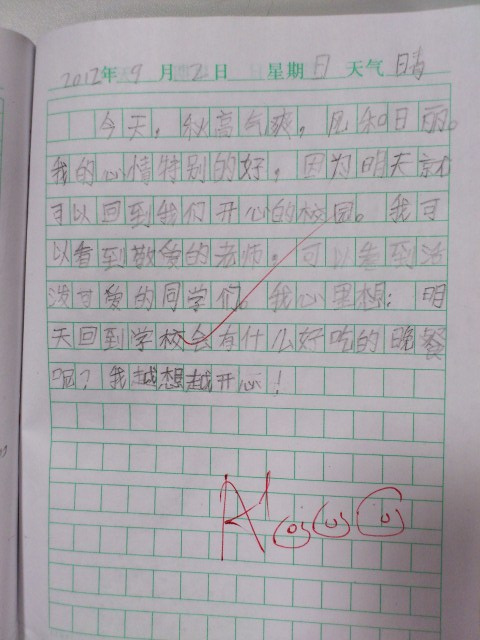 2012年9月2日 星期日 天气晴
今天，秋高气爽，风和日丽。
我的心情特别的好，因为明天就
可以回到我们开心的校园。我可
以看到敬爱的老师，可以看到活
泼可爱的同学们。我心里想：明
天回到学校会有什么好吃的晚餐
呢？我越想越开心！
A